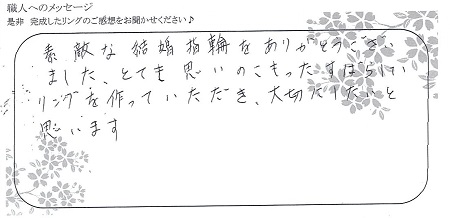 職人へのメッセージ
是非 完成したリングのご感想をお聞かせください♪
素敵な結婚指輪をありがとうござい
ました、とても思いのこもったすばらしい
リングを作っていただき、大切にしたいと
思います